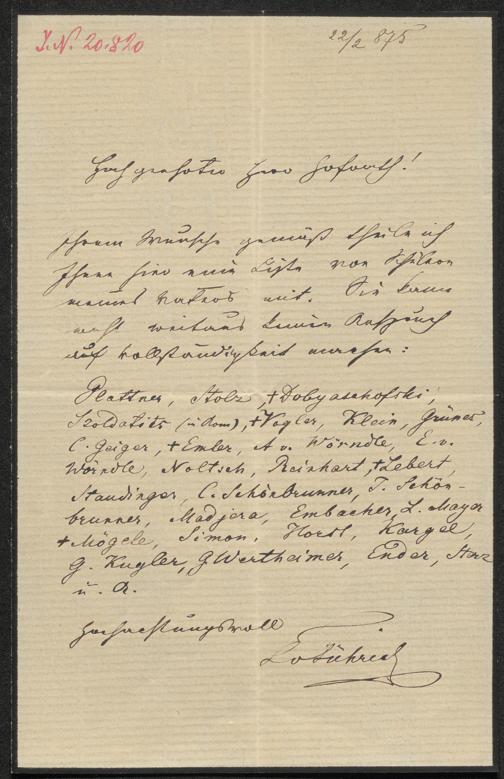 J.N. 20.820
22/2 875
Hochgeehrter Herr Hofrath!
Ihrem Wunsche gemäß theile ich
Ihnen hier eine Liste von Schülern
meines Vaters mit. Sie kann
weitaus keinen Anspruch
auf Vollständigkeit machen:
Plattner, Stolz, +Dobyaschofski,
Szoldatits (in Rom), +Vogler, Klein, Grünes,
C. Geiger, +Emler, A v. Wörndle, E. v.
Wörndle, Noltsch, Reinhart, +Lebert,
Staudinger, C. Schönbrunner, J. Schön-
brunner, Madjera, Embacher, L. Mayer
+Mögele, Simon, Horst, Kargel,
G. Kugler, G. Wertheimer, Ender,
u. A.
Hochachtungsvoll
Führich